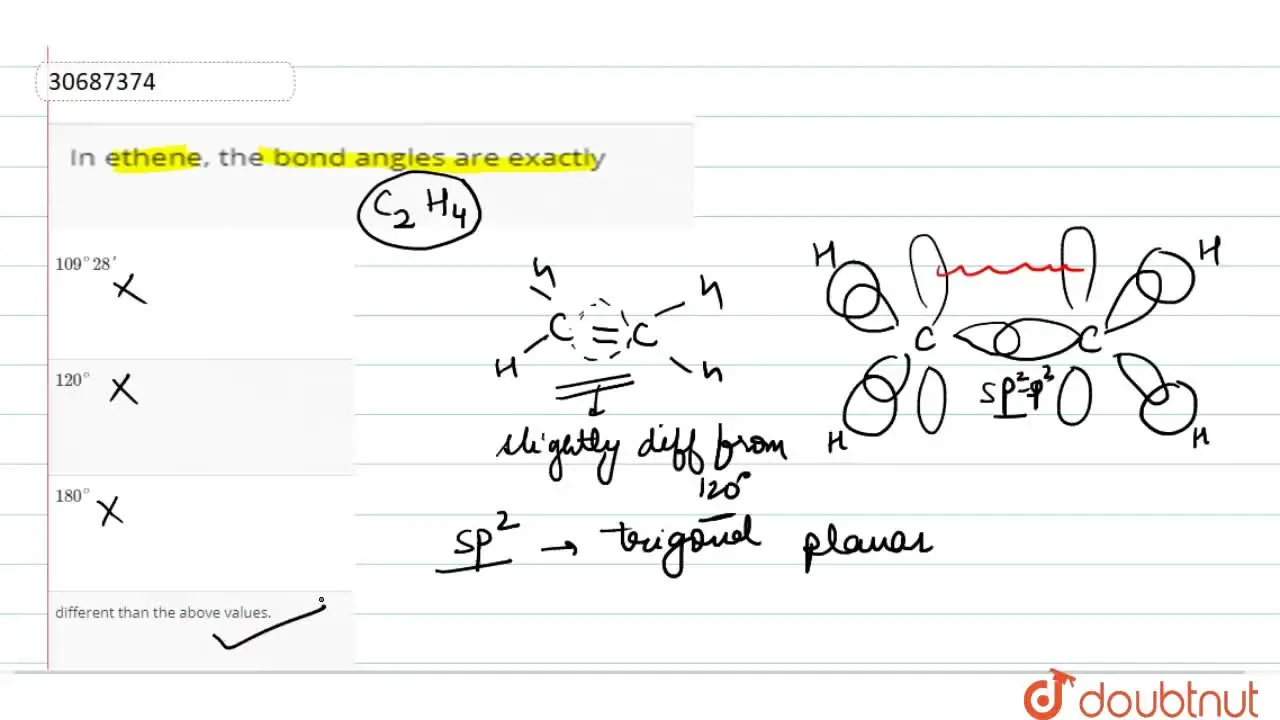 30687374
In ethene, the bond angles are exactly
C2 H4
109°28′
X
120°
X
180°
X
different than the above values.
H
H
C = C
H
H
slightly diff from
120°
sp² → trigonal planar
H
H
C
C
sp²
H
H
doubtnut